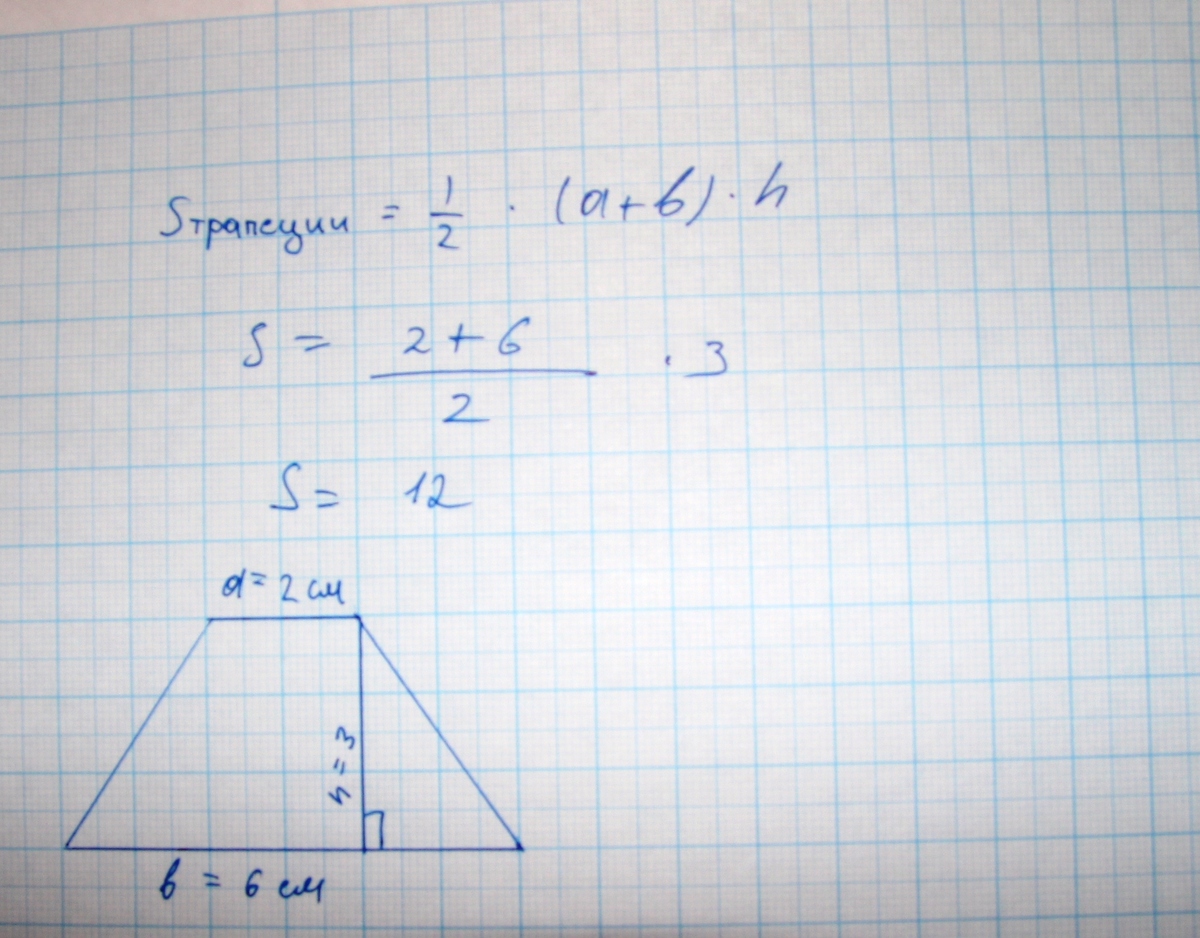 Sтрапеции = 1/2 · (a+b) · h
S = 2+6/2 · 3
S = 12
a = 2 см
h = 3
b = 6 см